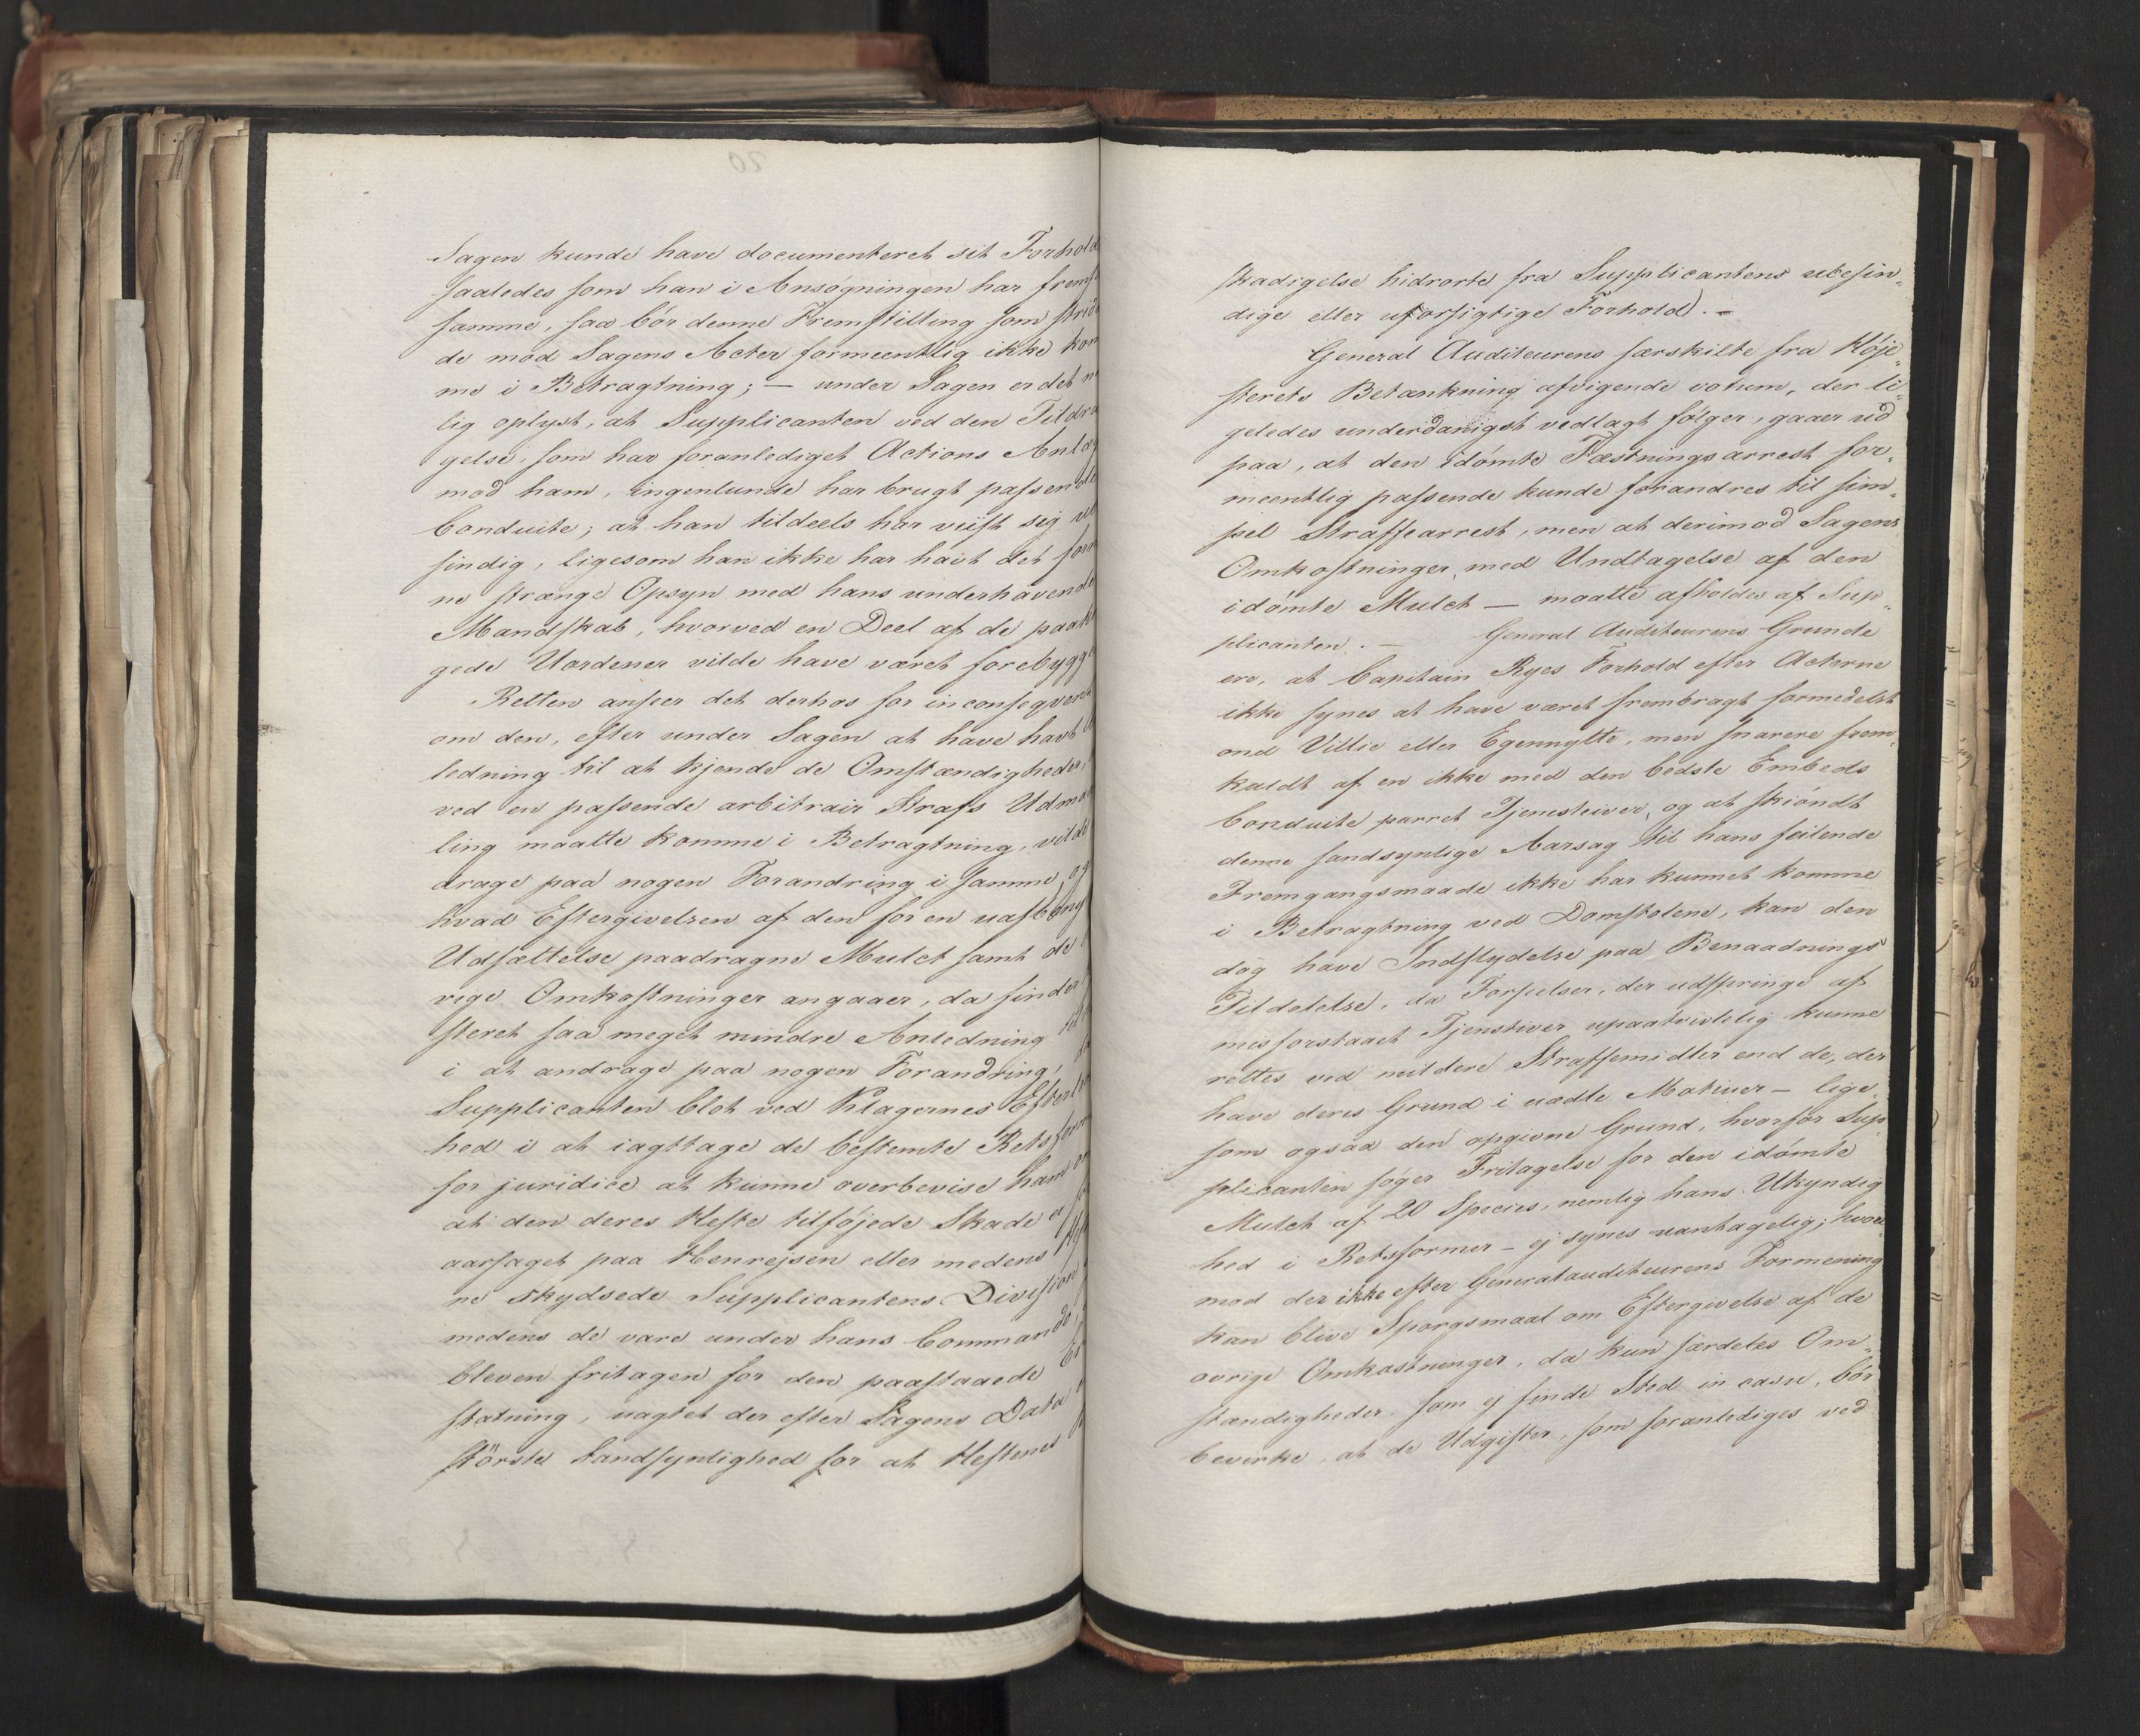 Sagen kunde have documenteret sit Forhold
saaledes som han i Ansøgningen har fremsa
samme, saa bör denne Fremstilling som strid
de mod Sagens Acter formeentlig ikke kom
me i Betragtning; — under Sagen er det n
lig oplyst, at Supplicanten ved den Tildra
gelse, som har foranlediget Actions Anlæ
mod ham, ingenlunde har brugt passende
Conduite; at han tildeels har viist sig ub
sindig, ligesom han ikke har havt det for
ne strænge Opsyn med hans underhavende
Mandskab, hvorved en Deel af de paakl
gede Uordener vilde have været forebygge
Retten anseer det derhos for inconseqvent
om den, efter under Sagen at have havt
ledning til at kjende de Omstændigheder,
ved en passende arbitrair Strafs Udmaa
ling maatte komme i Betragtning, vilde
drage paa nogen Forandring i samme, og
hvad Eftergivelsen af den for en uafbeny
Udsættelse paadragne Mulct samt de
vrige Omkostninger angaaer, da finder
steret saa meget mindre Anledning til
i at andrage paa nogen Forandring,
Supplicanten blot ved Klagernes Efterla
hed i at iagttage de bestemte Retsform
for juridice at kunne overbevise ham om
at den deres Heste tilføjede Skade
aarsaget paa Henrejsen eller medens
ne skydsede Supplicantens Division
medens de vare under hans Commando,
bleven fritagen for den paastaaede Er
statning, uagtet der efter Sagens Data
største Sandsynlighed for at Hestenes
skadigelse hidrørte fra Supplicantens ubesin„
dige eller uforsigtige Forhold. —
General Auditeurens særskilte fra Høje„
sterets Betænkning afvigende votum, der li„
geledes underdanigst vedlagt følger, gaaer ud
paa, at den idømte Fæstningsarrest for„
meentlig passende kunde forandres til sim„
pel Straffearrest, men at derimod Sagens
Omkostninger, med Undtagelse af den
idømte Mulct — maatte afholdes af Sup„
plicanten. — General Auditeurens Grunde
ere, at Capitain Ryes Forhold efter Acterne
ikke synes at have været frembragt formedelst
ond Villie eller Egennytte, men snarere frem„
kaldt af en ikke med den bedste Embeds
Conduite parret Tjenesteiver, og at skiøndt
denne sandsynlige Aarsag til hans feilende
Fremgangsmaade ikke har kunnet komme
i Betragtning ved Domstolene, kan den
dog have Indflydelse paa Benaadnings
Tildelelse, da Forseelser, der udspringe af
misforstaaet Tjenstiver upaatvivlelig kunne
rettes ved mildere Straffemidler end de, der
have deres Grund i uædle Motiver — lige„
som ogsaa den opgivne Grund, hvorfor Sup„
plicanten søger Fritagelse for den idømte
Mulct af 20 Species, nemlig hans Ukyndig
hed i Retsformer — ej synes uantagelig; hvor
mod der ikke efter Generalauditeurens Formening
kan blive Spørgsmaal om Eftergivelse af de
øvrige Omkostninger, da kun særdeles Om„
stændigheder, som ej finde Sted in casu, bør
bevirke, at de Udgifter, som foranlediges ved